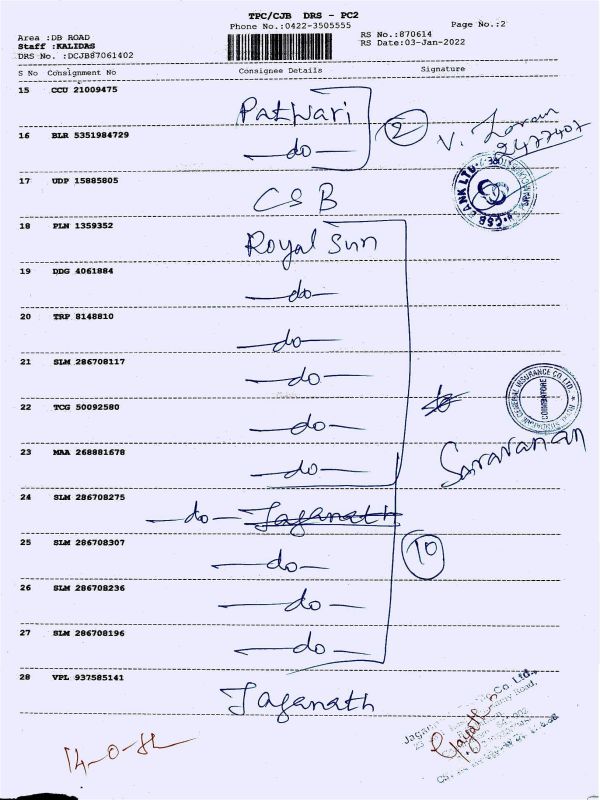 TPC/CJB DRS - PC2
Phone No.:0422-3505555
Page No.:2
Area :DB ROAD
Staff :KALIDAS
DRS No. :DCJB87061402
RS No.:870614
RS Date:03-Jan-2022
S No Consignment No Consignee Details Signature
15 CCU 21009475 Patwari
16 BLR 5351984729 do
2
V.
2477407
CSB BANK LTD.
17 UDP 15885805 CSB
18 PLN 1359352 Royal Sun
19 DDG 4061884 do
20 TRP 8148810 do
21 SLM 286708117 do
22 TCG 50092580 do
ROYAL SUNDARAM GENERAL INSURANCE CO. LTD.
COIMBATORE
23 MAA 268881678 do
Saravanan
24 SLM 286708275 do Jaganath
25 SLM 286708307 do
10
26 SLM 286708236 do
27 SLM 286708196 do
28 VPL 937585141 Jaganath
Co Ltd.,
Road,